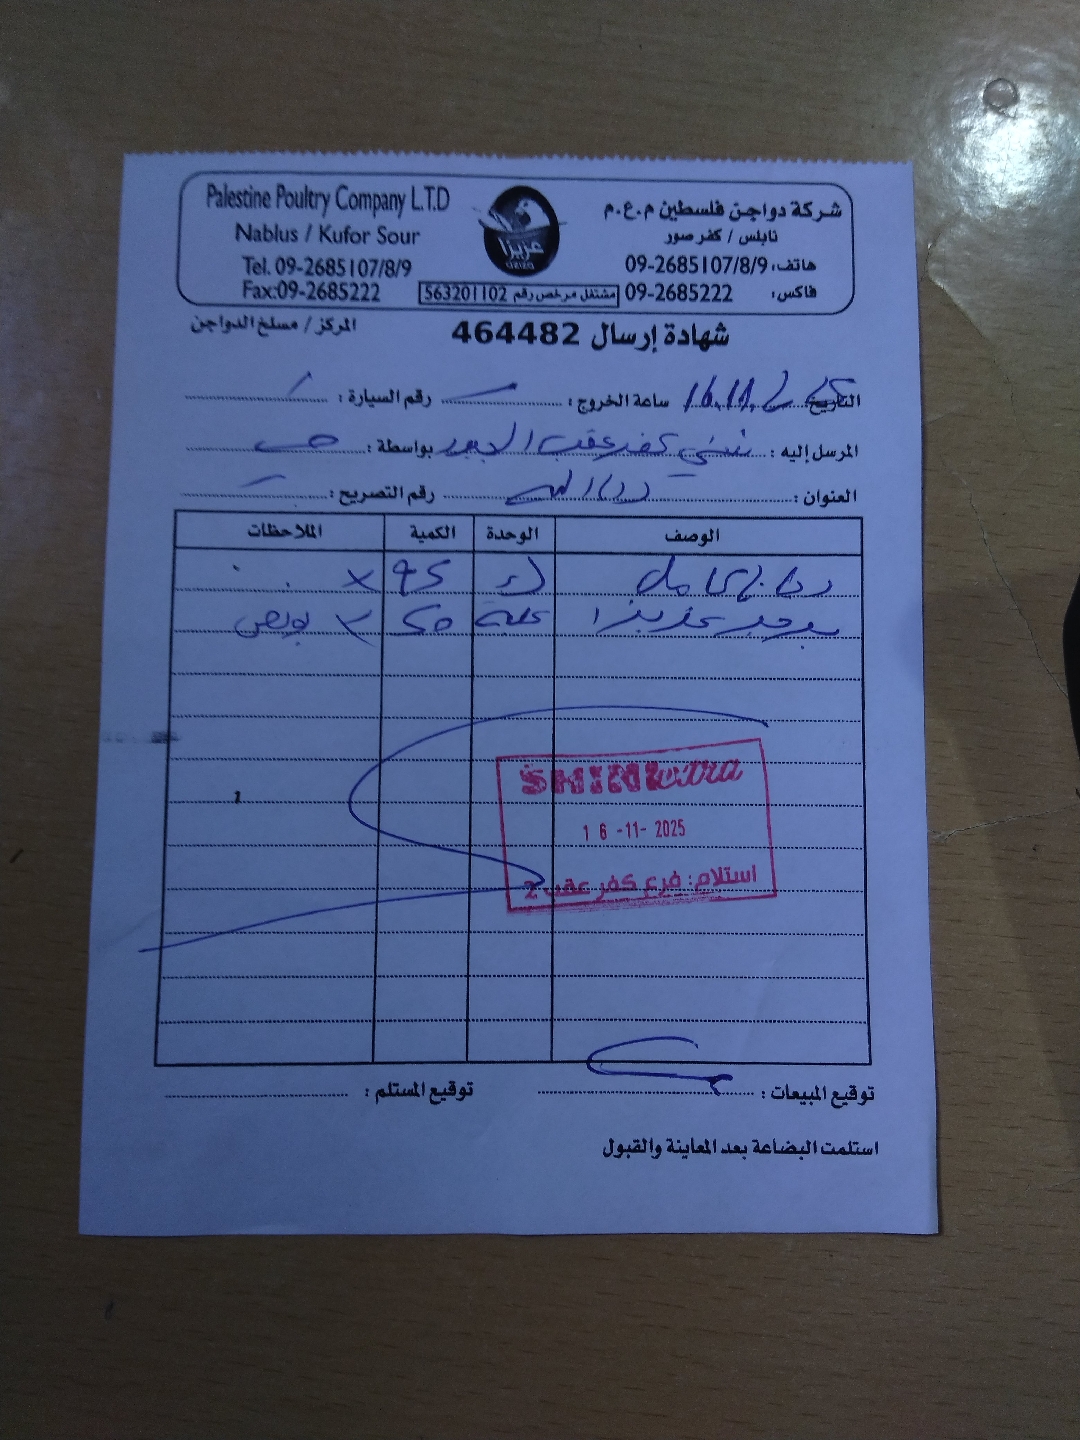 Palestine Poultry Company L.T.D
Nablus / Kufor Sour
Tel. 09-2685107/8/9
Fax:09-2685222
عزيزا
aziza
شركة دواجن فلسطين م.ع.م
نابلس / كفر صور
هاتف: 09-2685107/8/9
فاكس: 09-2685222
مشتغل مرخص رقم 563201102
المركز / مسلخ الدواجن
شهادة إرسال 464482
التاريخ 16.11. ساعة الخروج : رقم السيارة :
المرسل إليه : كفر عقب الجديد بواسطة :
العنوان : رام الله رقم التصريح :
الوصف الوحدة الكمية الملاحظات
دجاج كامل
برجر عزيزا علبة بونص
SHINI extra
16 -11- 2025
استلام: فرع كفر عقب 2
توقيع المبيعات : توقيع المستلم :
استلمت البضاعة بعد المعاينة والقبول